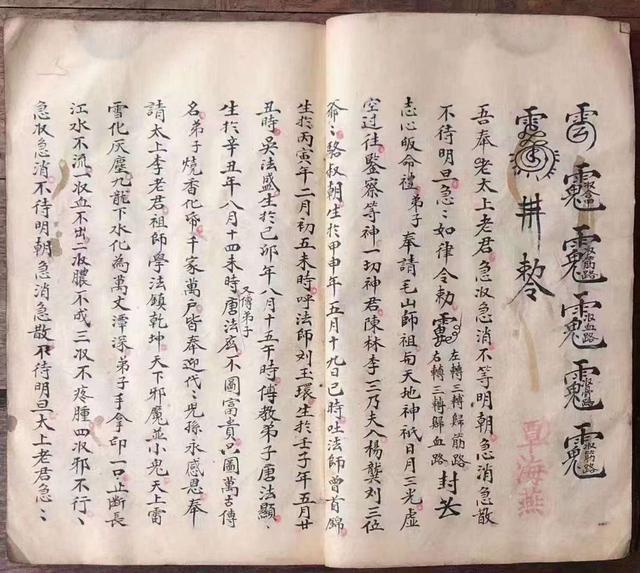 雲
靈 井 敕令
吾奉老太上老君急収急消不等明朝急消急散
不待明旦急〻如律令勅 左轉三轉歸筋路 右轉三轉歸血路 封
志心皈命禮弟子奉請毛山師祖与天地神祇日月三光虛
空过往鑒察等神一切神君陳林李三乃夫人楊龔刘三位
爺〻駱叔朝生扵甲申年五月十九日巳時吐法師曾首錦
生扵丙寅年二月初五未時呼法師刘玉環生扵壬子年五月廿
丑時吳法盛生扵己卯年八月十五午時傳教弟子唐法顯〻
又傳弟子
生扵辛丑年八月十四未時唐法 不圖富貴只圖萬古傳
名弟子燒香化帋千家萬戶皆奉迎代〻兒孫永感恩奉
請太上李老君祖師學法鎮乾坤天下邪魔並小鬼天上雷
雪化灰塵九龍下水化為萬丈潭深弟子手拿印一口止斷長
江水不流一収血不出二収膿不成三収不疼腫四収邪不行〻
急収急消不待明朝急消急散不待明旦太上老君急〻
覃海燕